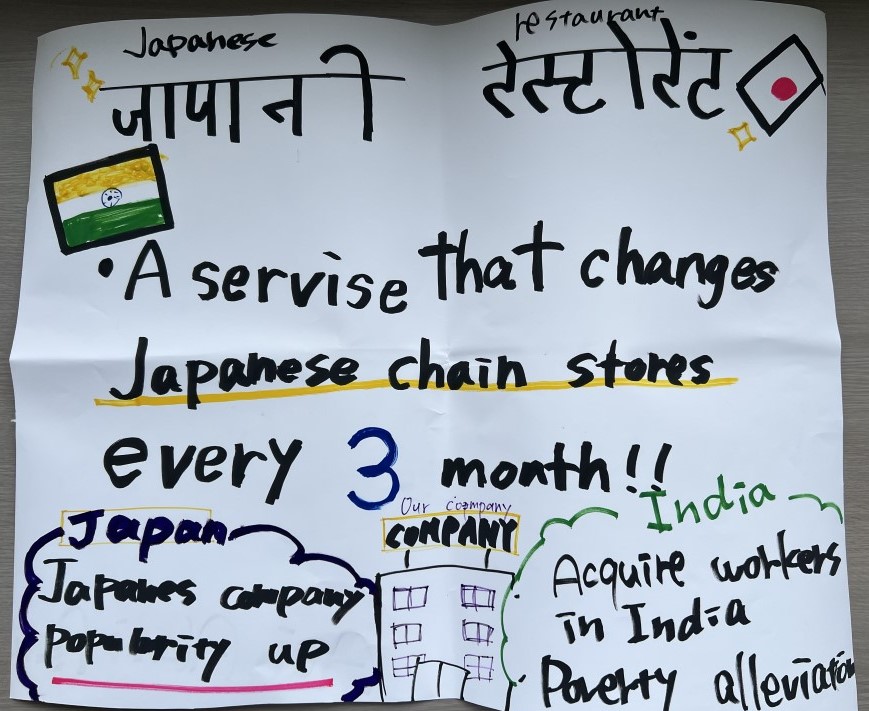 Japanese restaurant
जापानी रेस्टोरेंट
• A servise that changes
Japanese chain stores
every 3 month!!
Our company
COMPANY
Japan
Japanes company
popularity up
India
Acquire workers
in India
• Poverty alleviation